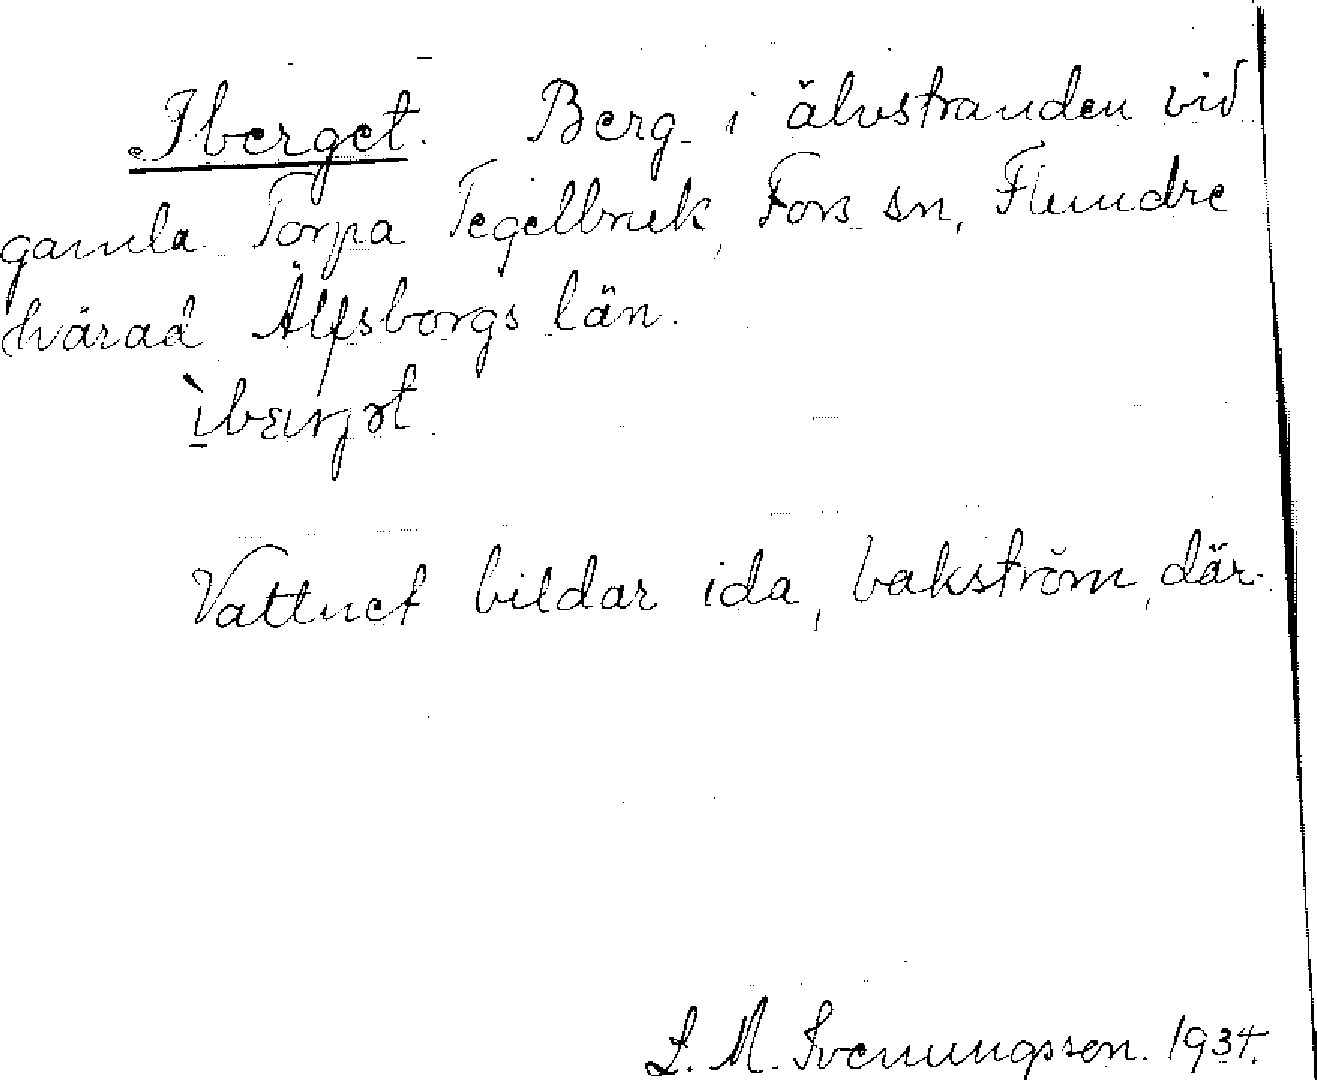 Iberget. Berg i älvstranden vid
gamla Torpa Tegelbruk, Fors sn, Flundre
härad Älfsborgs län.
ìbærjət.
Vattnet bildar ida, bakström, där.
L. M. Svenungsson. 1934.